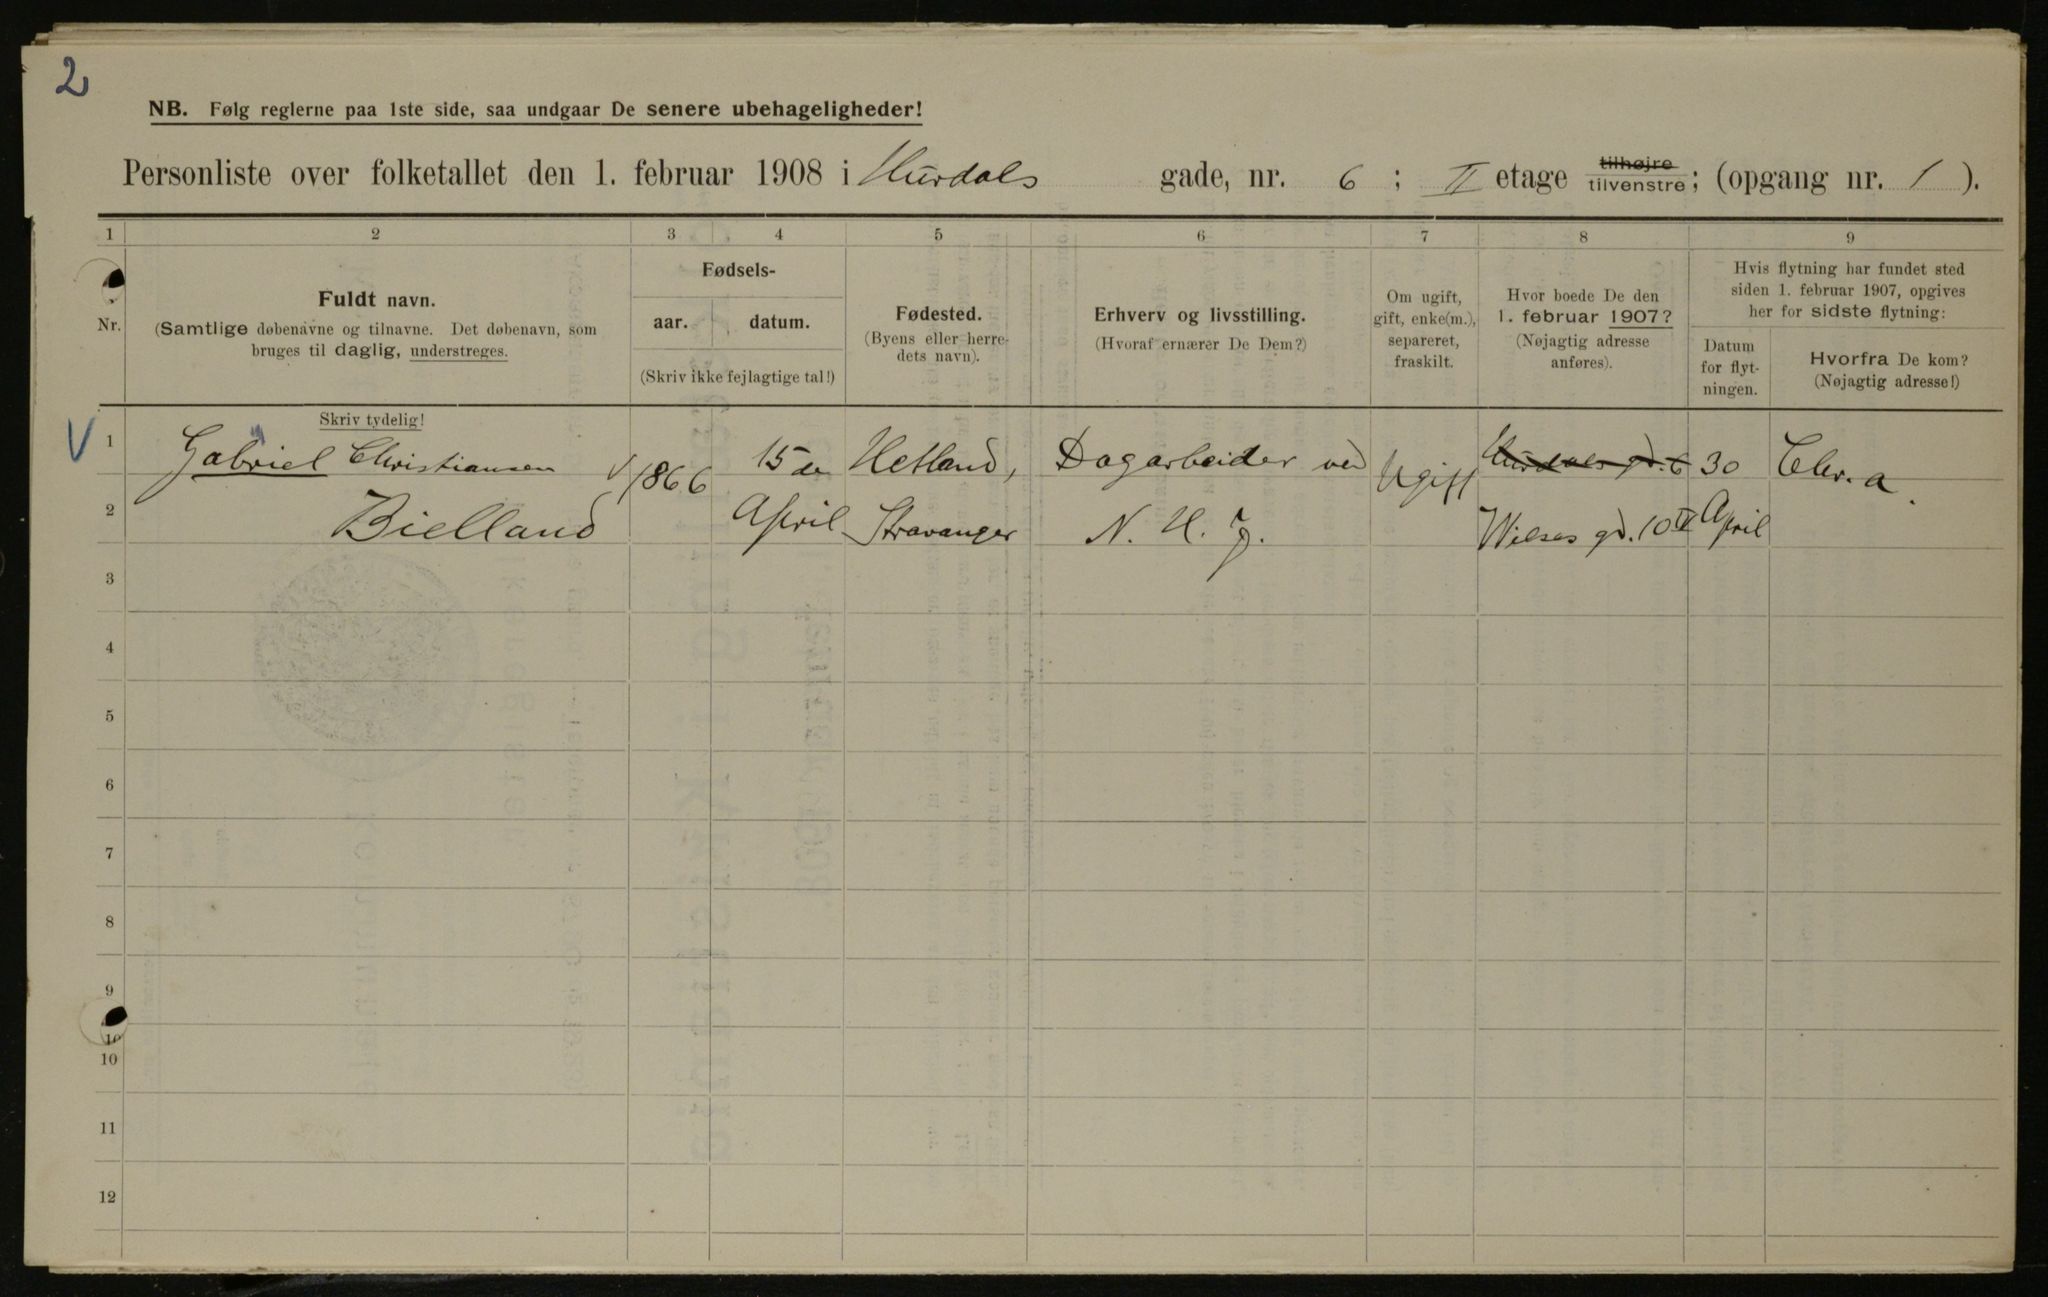 2
NB. Følg reglerne paa 1ste side, saa undgaar De senere ubehageligheder!
Personliste over folketallet den 1. februar 1908 i Hurdals gade, nr. 6 ; II etage tilhøjre tilvenstre; (opgang nr. 1 ).
1 2 3 4 5 6 7 8 9
Nr.
Fuldt navn.
(Samtlige døbenavne og tilnavne. Det døbenavn, som
bruges til daglig, understreges.
Skriv tydelig!
Fødsels-
aar. datum.
(Skriv ikke fejlagtige tal!)
Fødested.
(Byens eller herre-
dets navn).
Erhverv og livsstilling.
(Hvoraf ernærer De Dem?)
Om ugift,
gift, enke(m.),
separeret,
fraskilt.
Hvor boede De den
1. februar 1907?
(Nøjagtig adresse
anføres).
Hvis flytning har fundet sted
siden 1. februar 1907, opgives
her for sidste flytning:
Datum
for flyt-
ningen.
Hvorfra De kom?
(Nøjagtig adresse!)
V 1 Gabriel Christiansen 1866 15de Hetland, Dagarbeider ved Ugift Hurdals gd. 6 30 Chr.a.
2 Bielland April Stavanger N. H. J. Wilses gd. 10 II April
3
4
5
6
7
8
9
10
10
11
12